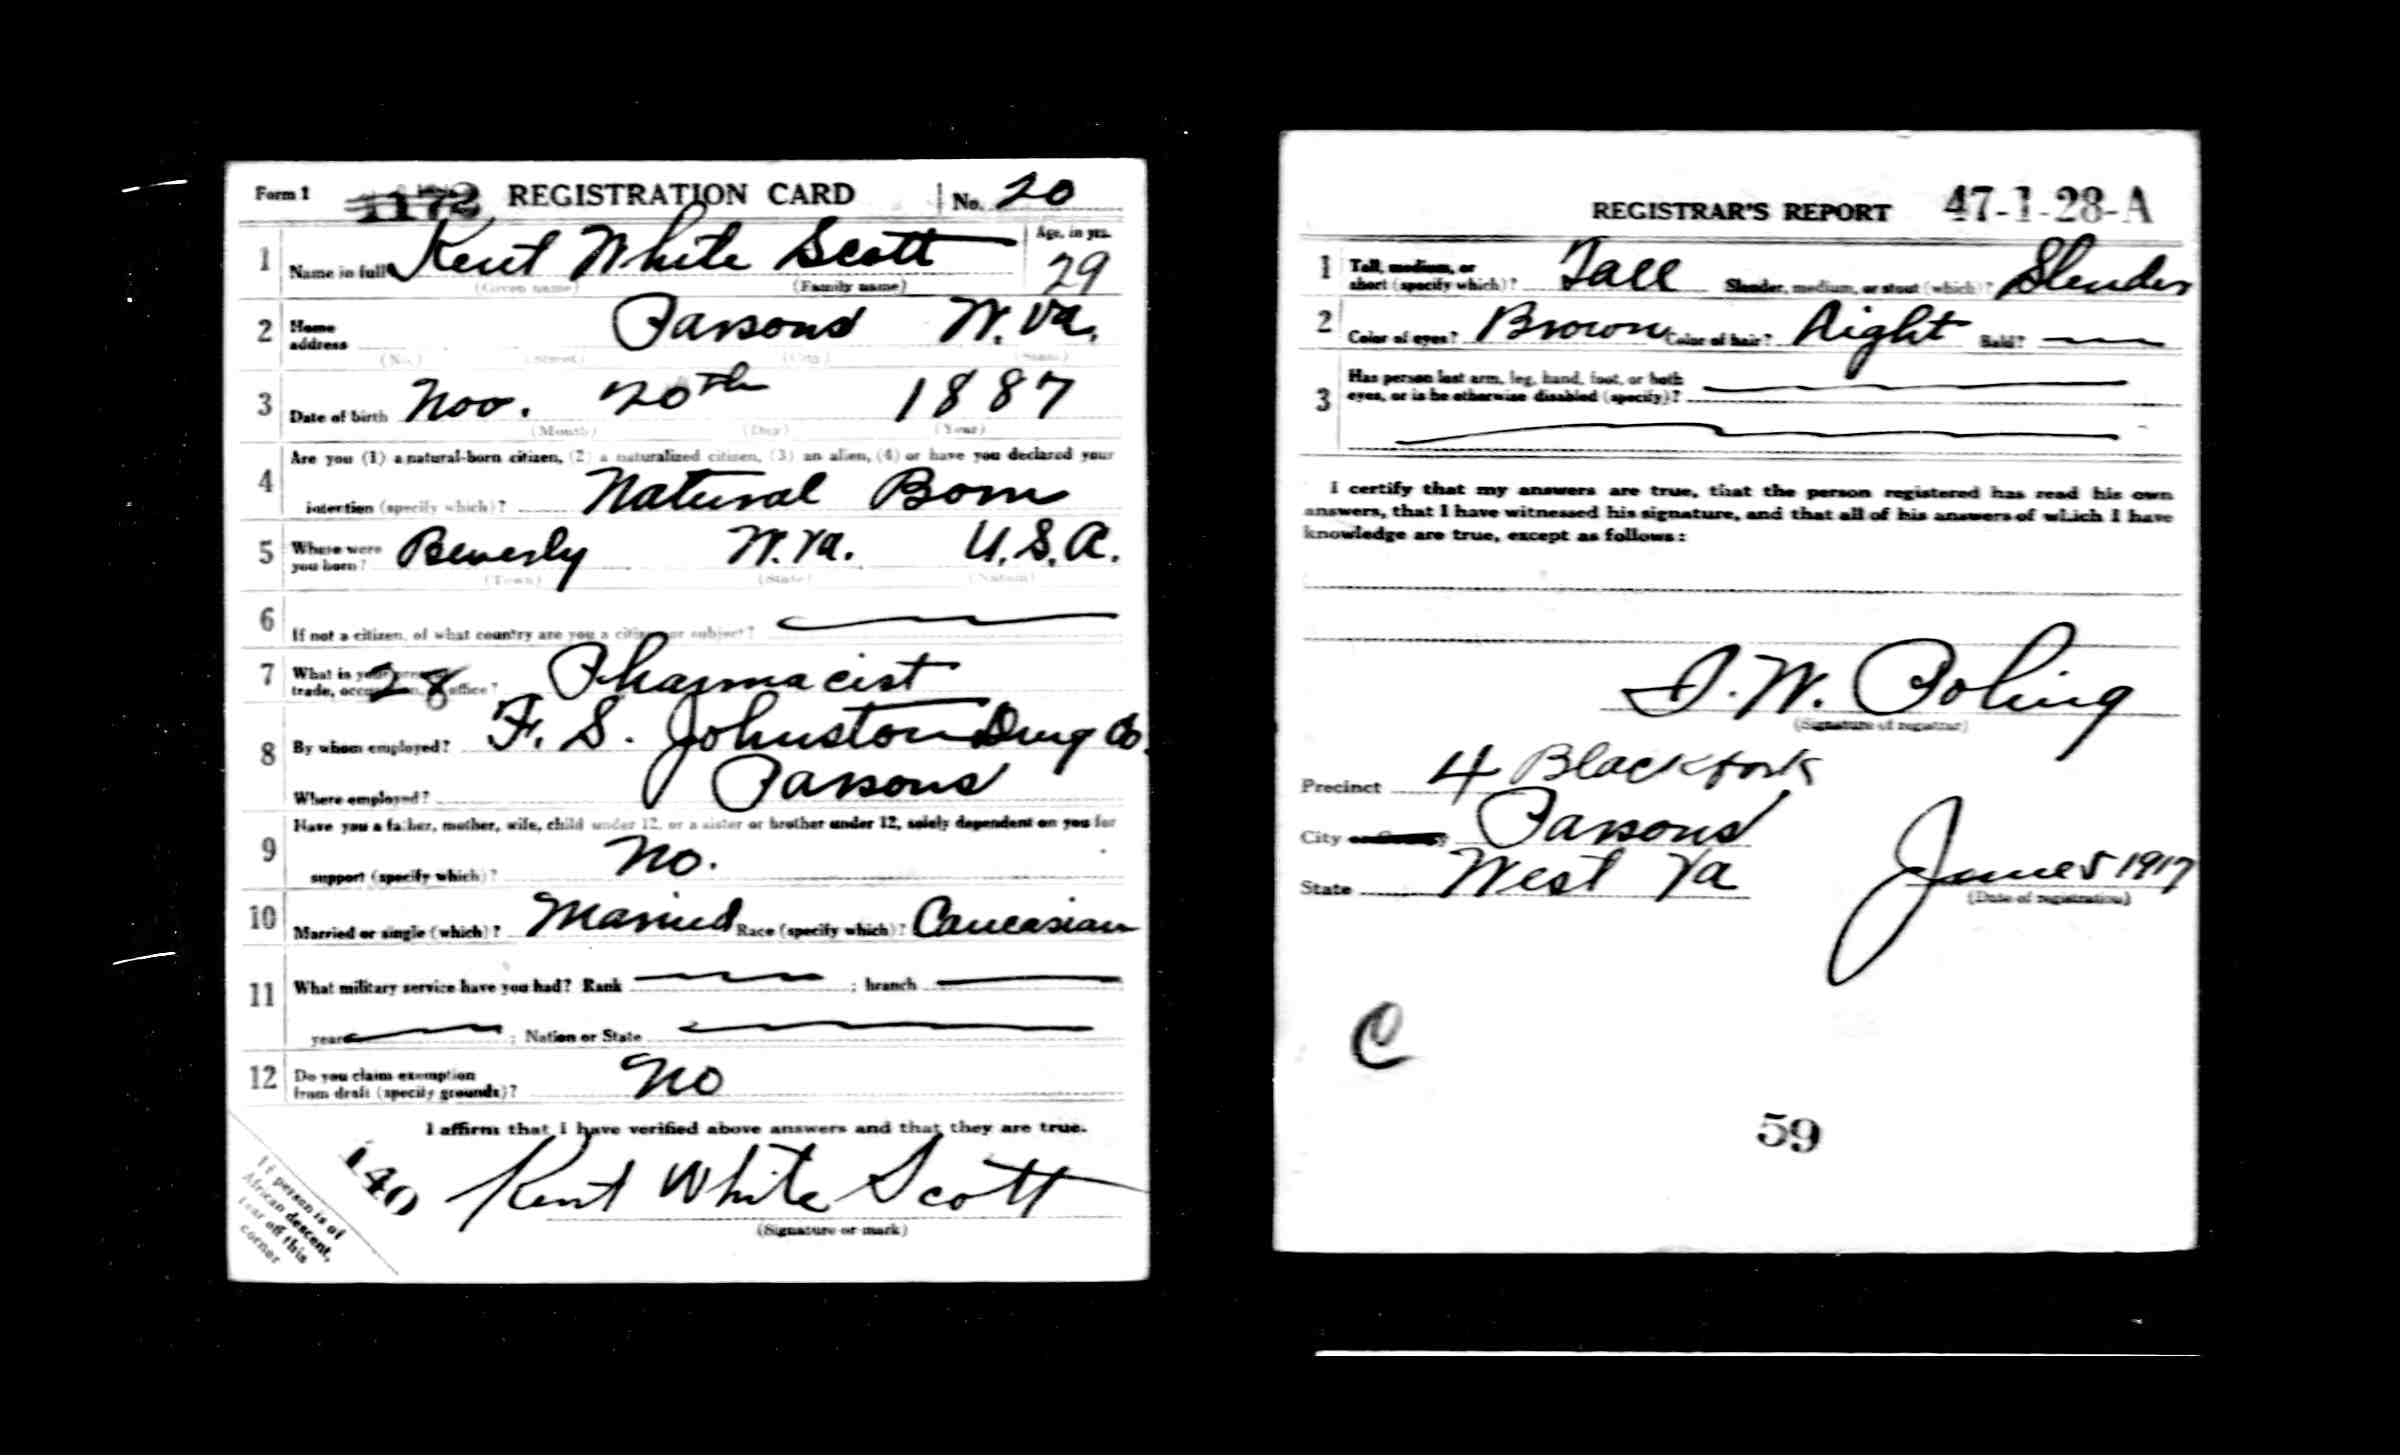 Form 1 1172 REGISTRATION CARD No. 20
1 Name in full Kent White Scott Age, in yrs. 29
(Given name) (Family name)
2 Home address Parsons W. Va.
(No.) (Street) (City) (State)
3 Date of birth Nov. 20th 1887
(Month) (Day) (Year)
4 Are you (1) a natural-born citizen, (2) a naturalized citizen, (3) an alien, (4) or have you declared your
intention (specify which)? Natural Born
5 Where were you born? Beverly W. Va. U.S.A.
(Town) (State) (Nation)
6 If not a citizen, of what country are you a citizen or subject?
7 What is your present trade, occupation, or office? 28 Pharmacist
8 By whom employed? F. S. Johnston Drug Co.
Where employed? Parsons
9 Have you a father, mother, wife, child under 12, or a sister or brother under 12, solely dependent on you for
support (specify which)? No.
10 Married or single (which)? Married Race (specify which)? Caucasian
11 What military service have you had? Rank ; branch
years ; Nation or State
12 Do you claim exemption from draft (specify grounds)? No
I affirm that I have verified above answers and that they are true.
140 Kent White Scott
(Signature or mark)
If person is of
African descent,
tear off this
corner
REGISTRAR'S REPORT 47-1-28-A
1 Tall, medium, or short (specify which)? Tall Slender, medium, or stout (which)? Slender
2 Color of eyes? Brown Color of hair? Light Bald?
3 Has person lost arm, leg, hand, foot, or both
eyes, or is he otherwise disabled (specify)?
I certify that my answers are true, that the person registered has read his own
answers, that I have witnessed his signature, and that all of his answers of which I have
knowledge are true, except as follows:
W. Poling
(Signature of registrar)
Precinct 4 Blackfork
City or County Parsons
State West Va June 5 1917
(Date of registration)
C
59